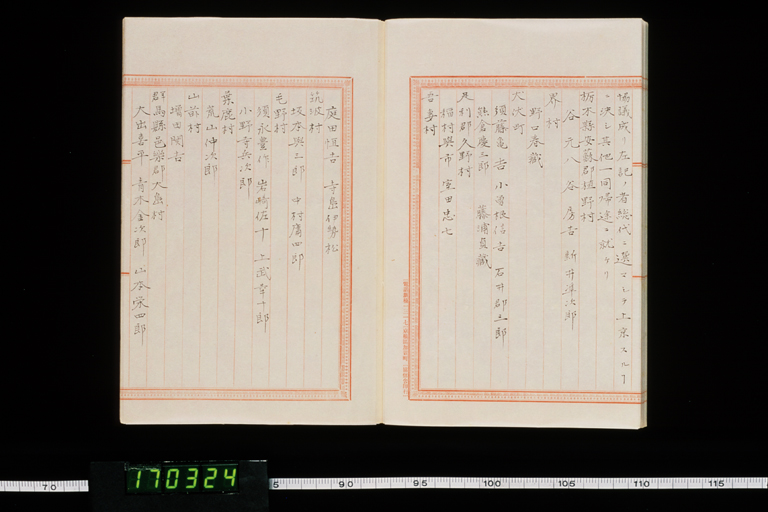 協議成リ左記ノ者総代ニ選マレテ上京スルコ
ニ決シ其他一同帰途ニ就ケリ
栃木縣安蘇郡植野村
谷 元八 谷 房吉 新井準次郎
界村
野口春藏
犬伏町
須藤竜吉 小曽根信吉 石井郡三郎
熊倉慶三郎 藤浦真藏
足利郡久野村
稲村與市 室田忠七
吾妻村
庭田恒吉 寺島伊勢松
筑波村
坂本與三郎 中村廣四郎
毛野村
須永豊作 岩崎佐十 上武幸十郎
小野寺兵次郎
葉鹿村
荒山仲次郎
山前村
増田関吉
群馬縣邑樂郡大島村
大出喜平 青木金次郎 山本栄四郎
170324
70
5
90
95
100
105
110
115